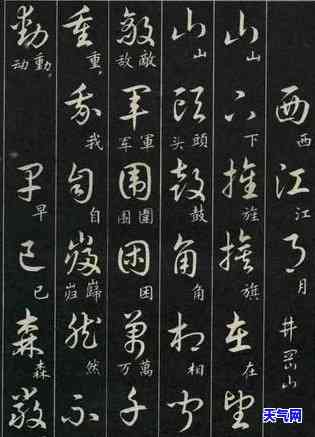 西西江江月月井岡山
山山下下旌旌旗旗在在望
山山头頭头鼓鼓角角相相闻
敌敵敌军軍军围圍围困困万萬万千
重重,我我自自巋然然不
动動,动早早已已森森严
天气网